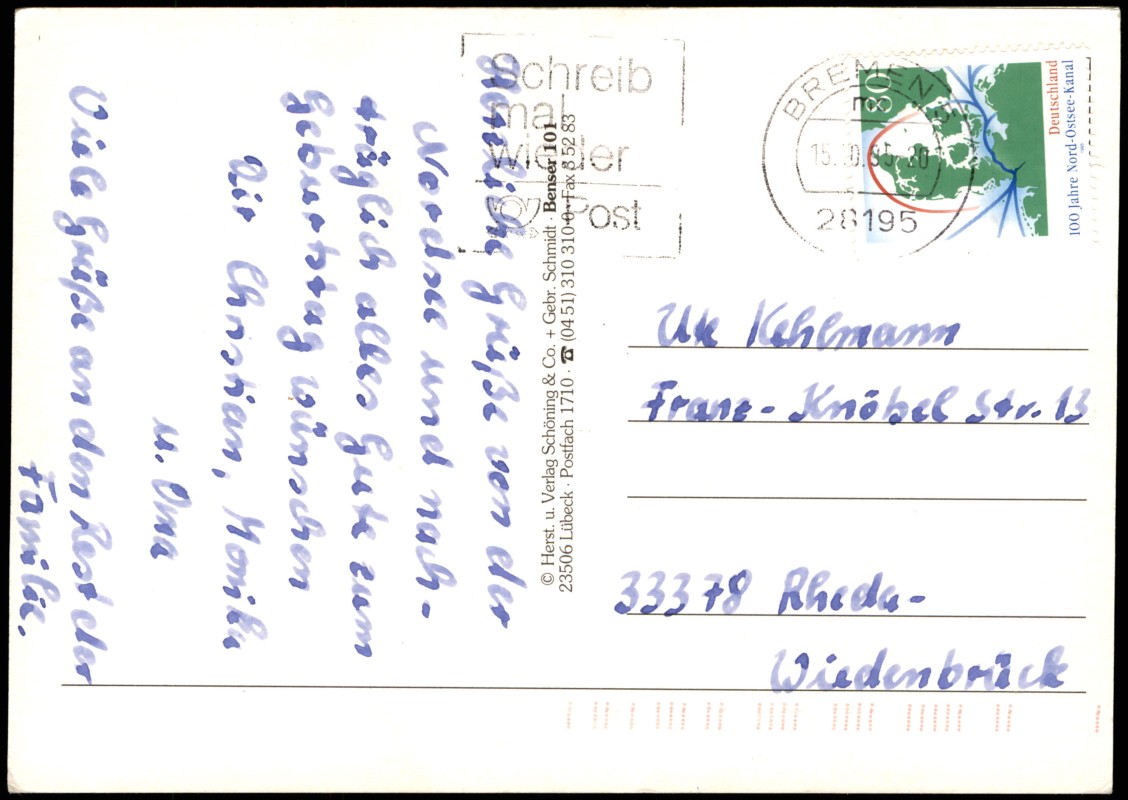 Herzliche Grüße von der
Nordsee und nach-
träglich alles Gute zum
Geburtstag wünschen
Dir Christian, Monika
u. Oma
Viele Grüße an den Rest der
Familie.
© Herst. u. Verlag Schöning & Co. + Gebr. Schmidt · Benser 101
23506 Lübeck · Postfach 1710 · ☎ (04 51) 310 310-0 · Fax 3 52 83
Schreib
mal
wieder
Post
BREMEN
28195
80
Deutschland
100 Jahre Nord-Ostsee-Kanal
Kehlmann
Franz-Knöbel Str. 13
33378 Rheda-
Wiedenbrück